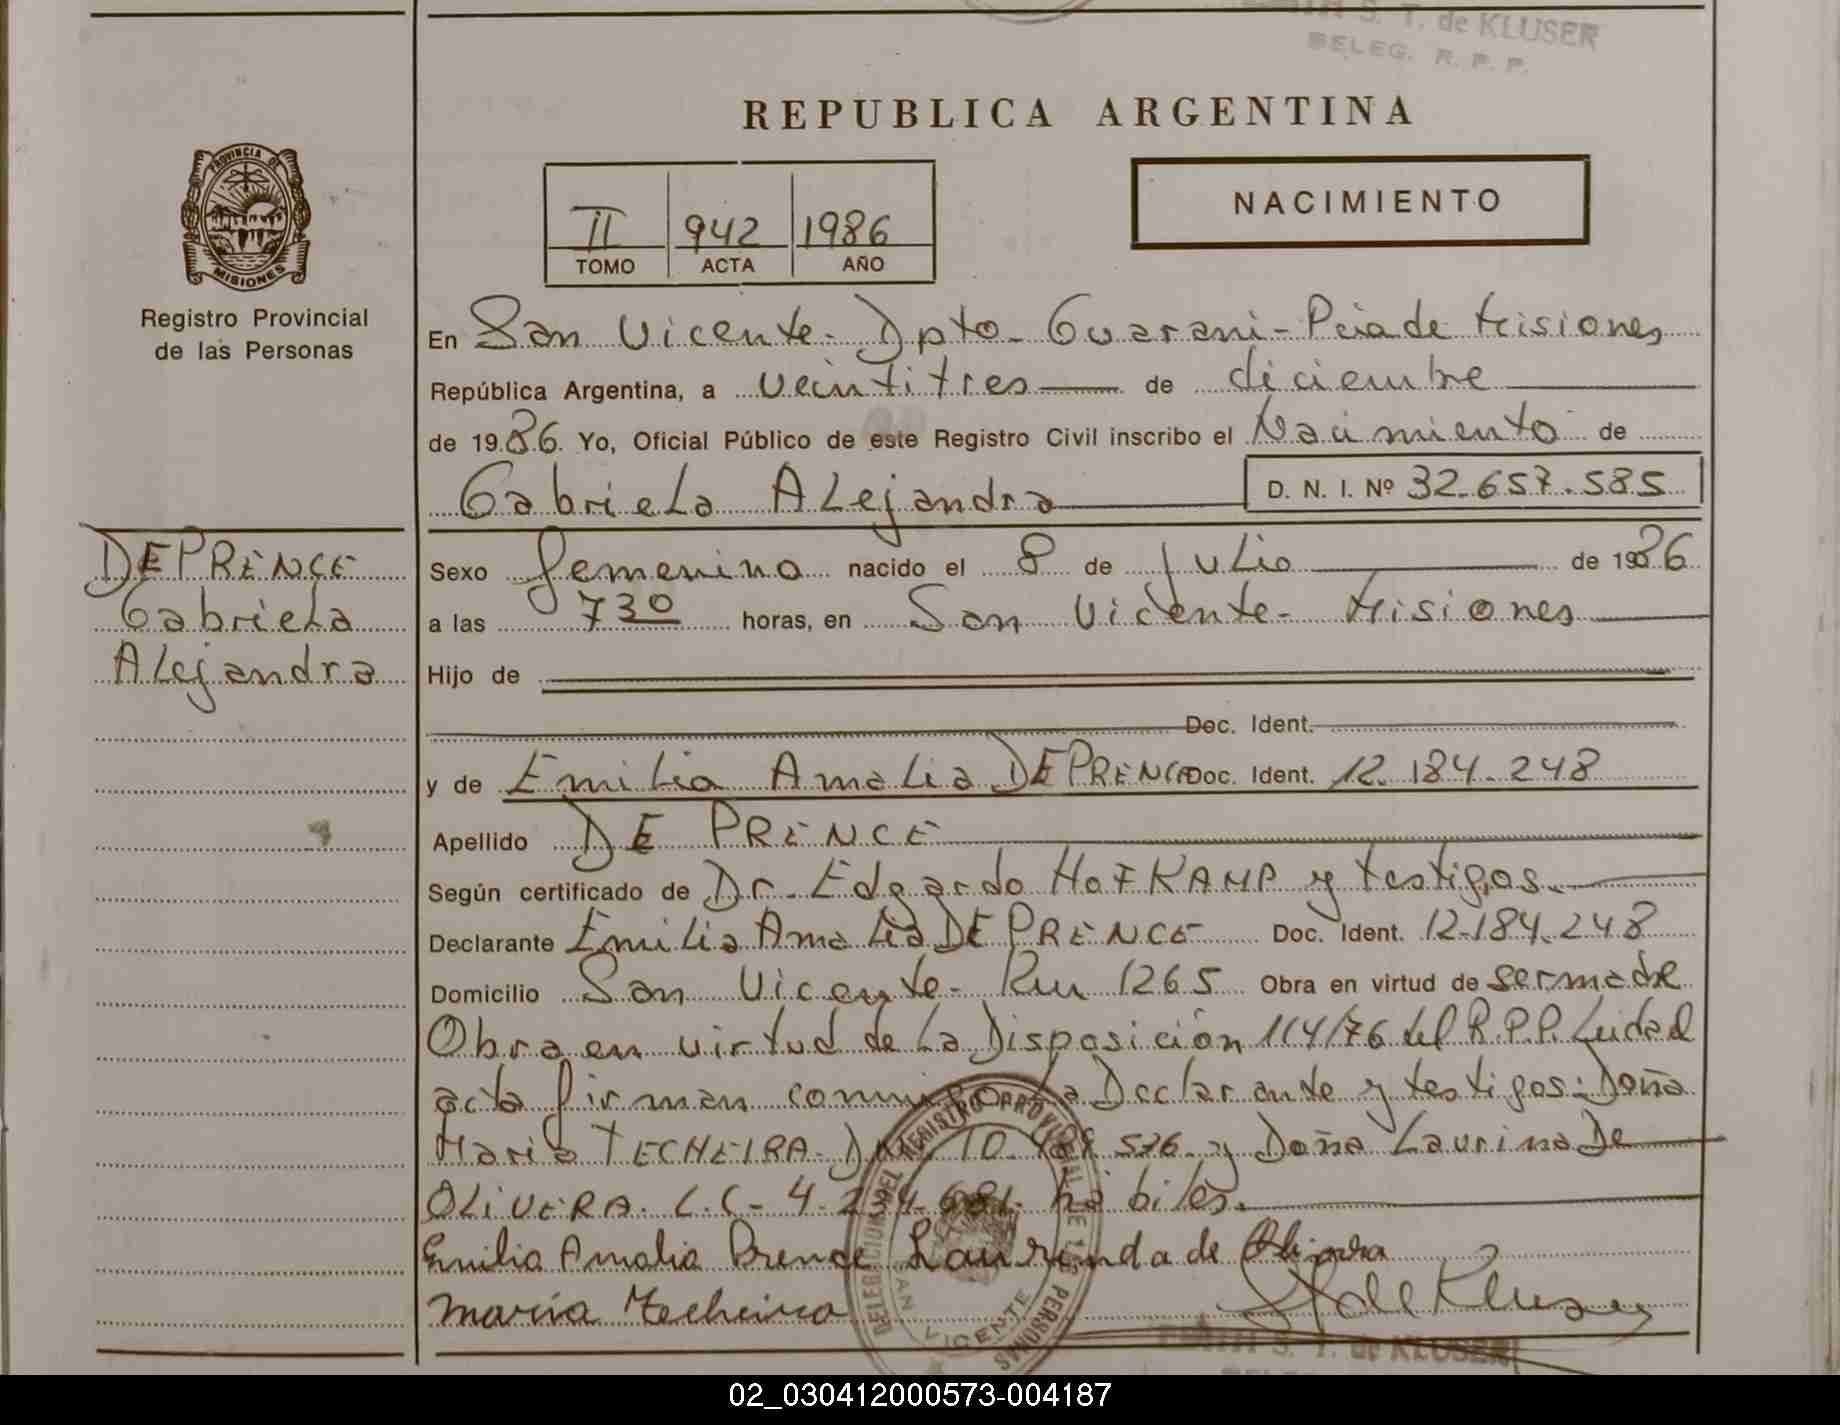 S. T. de KLUSER
DELEG. R. P. P.
REPUBLICA ARGENTINA
PROVINCIA DE
MISIONES
Registro Provincial
de las Personas
II 942 1986
TOMO ACTA AÑO
NACIMIENTO
En San Vicente- Dpto- Guarani- Pcia de Misiones
República Argentina, a veintitres de diciembre
de 1986. Yo, Oficial Público de este Registro Civil inscribo el Nacimiento de
Gabriela ALejandra D. N. I. Nº 32.657.585
DE PRENCE
Gabriela
ALejandra
Sexo femenino nacido el 8 de Julio de 1986
a las 7 30 horas, en San Vicente- Misiones
Hijo de
Doc. Ident.
y de Emilia Amalia DE PRENCE Doc. Ident. 12.184.248
Apellido DE PRENCE
Según certificado de Dr. Edgardo HOFKAMP y testigos.
Declarante Emilia Amalia DE PRENCE Doc. Ident. 12.184.248
Domicilio San Vicente- Km 1265 Obra en virtud de ser madre
Obra en virtud de La Disposición 114/76 del R.P.P. Leida el
acta firman conmigo La Declarante y testigos: Doña
Maria TECHEIRA- 10. 576. y Doña Laurinda De
OLIVERA. L.C- 4. hábiles.
Emilia Amalia Prence Laurinda de Olivera
maria Techeira
DELEGACION DEL REGISTRO PROVINCIAL DE LAS PERSONAS
SAN VICENTE
S. T. de KLUSER
02_030412000573-004187